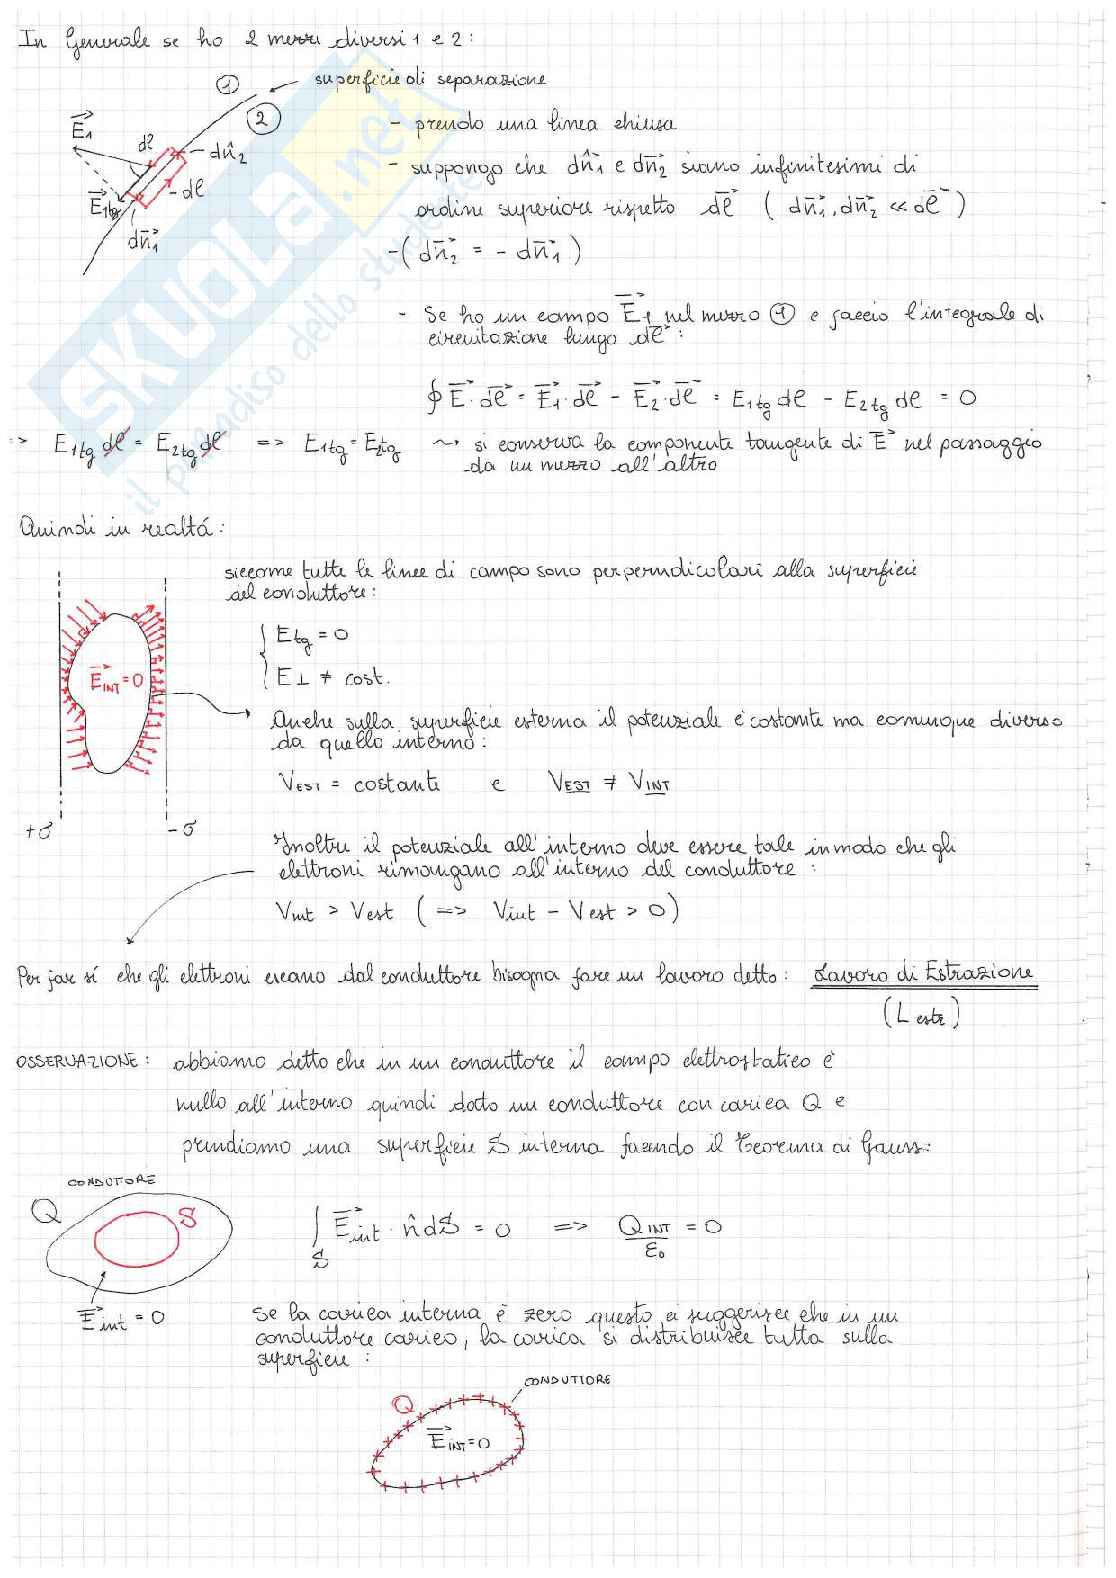 In Generale se ho 2 mezzi diversi 1 e 2:
1
superficie di separazione
2
E1
dl
dn̂2
- prendo una linea chiusa
- suppongo che dn̂1 e dn2 siano infinitesimi di
E1tg
- dl
ordine superiore rispetto dl ( dn1, dn2 << dl )
dn1
-( dn2 = - dn1 )
- Se ho un campo E1 nel mezzo 1 e faccio l'integrale di
circuitazione lungo dl :
∮ E · dl = E1 · dl - E2 · dl = E1tg dl - E2tg dl = 0
=> E1tg dl = E2tg dl => E1tg = E2tg ~> si conserva la componente tangente di E nel passaggio
da un mezzo all'altro
Quindi in realtá:
siccome tutte le linee di campo sono perpendicolari alla superficie
del conduttore:
Etg = 0
E⊥ ≠ cost.
EINT = 0
Anche sulla superficie esterna il potenziale è costante ma comunque diverso
da quello interno:
VEST = costante e VEST ≠ VINT
+σ
-σ
Inoltre il potenziale all'interno deve essere tale in modo che gli
elettroni rimangano all'interno del conduttore :
Vint > Vest ( => Vint - Vest > 0 )
Per far sí che gli elettroni escano dal conduttore bisogna fare un lavoro detto: Lavoro di Estrazione
(L estr)
OSSERVAZIONE: abbiamo detto che in un conduttore il campo elettrostatico è
nullo all'interno quindi dato un conduttore con carica Q e
prendiamo una superficie S interna facendo il Teorema di Gauss:
CONDUTORE
Q
S
∫S Eint · n̂ dS = 0 => QINT / ε0 = 0
Eint = 0
Se la carica interna è zero questo ci suggerisce che in un
conduttore carico, la carica si distribuisce tutta sulla
superficie :
CONDUTTORE
Q
EINT = 0
SKUOLA.net
il paradiso dello studente